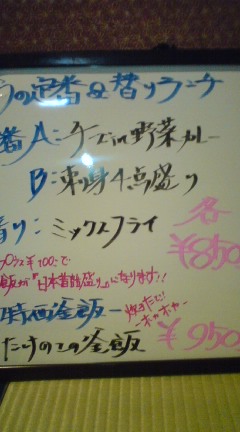 の定番&日替りランチ
番A:チーズin野菜カレー
B:刺身4点盛り
替り:ミックスフライ
各
¥850
プラス¥100で
飯が"日本昔話盛り"になります!!
時価釜飯ー
炊きたて!
ーホッホカー
たけのこの釜飯
¥950